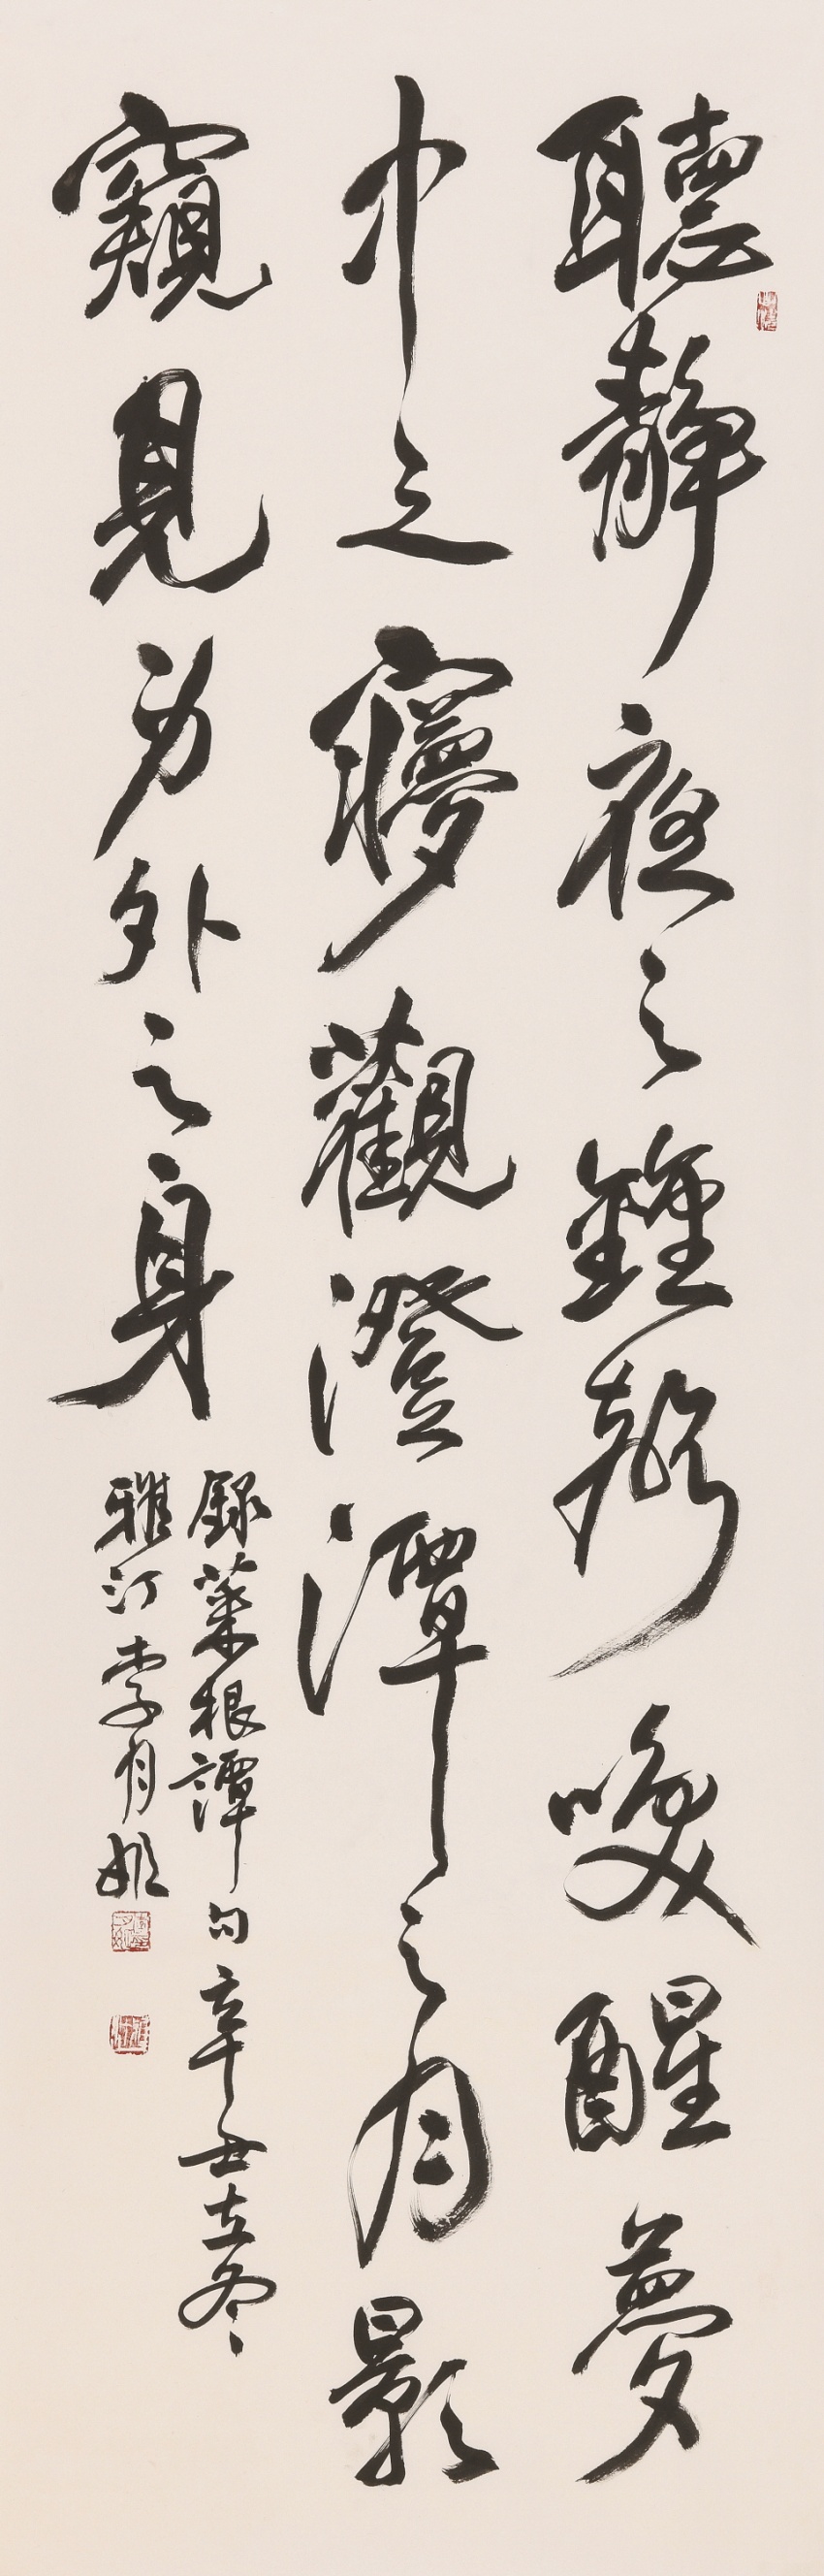 聽靜夜之鐘聲喚醒夢
中之夢觀澄潭之月影
窺見身外之身
錄菜根譚句辛丑立冬
雅汀李月姬